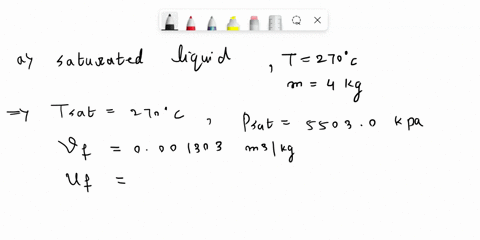 a) saturated liquid , T = 270°c
m = 4 kg
=> Tsat = 270°c , Psat = 5503.0 kpa
νf = 0.001303 m3/kg
uf =